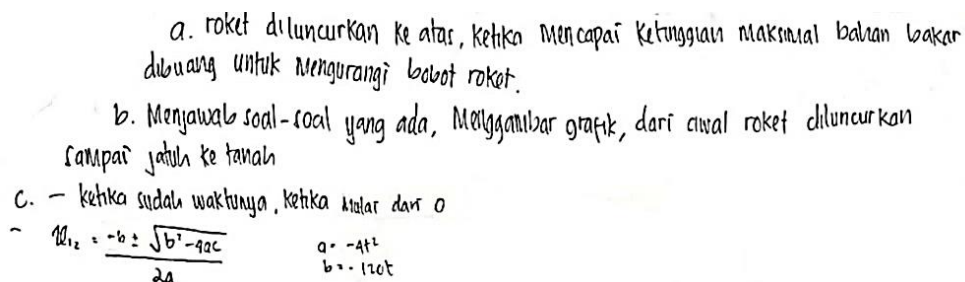 a. roket diluncurkan ke atas, ketika Mencapai ketinggian maksimal bahan bakar
dibuang untuk Mengurangi bobot roket.
b. Menjawab soal-soal yang ada, Menggambar grafik, dari awal roket diluncurkan
sampai jatuh ke tanah
C. - ketika sudah waktunya, ketika mulai dari 0
- x₁₂ = -b ± √b²-4ac / 2a a = -4t²
b = -120t